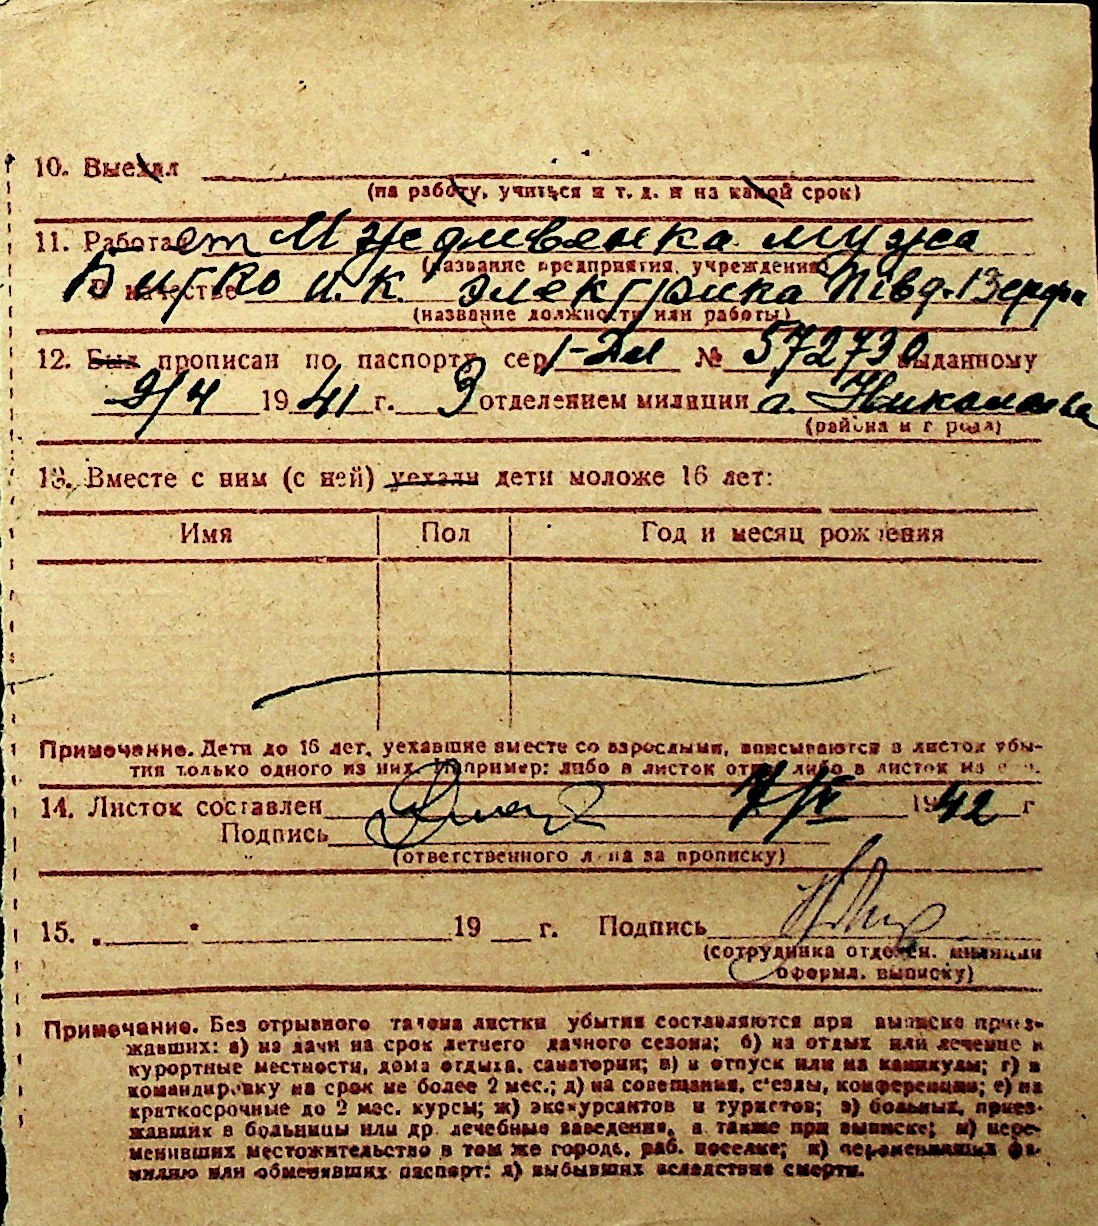 10. Выехал
(на работу, учиться и т. д. и на какой срок)
11. Работает Иждивенка мужа
(название предприятия, учреждения)
В качестве Витко И. К. электрика Півд. Верфи
(название должности или работы)
12. Был прописан по паспорту сер. № 572730 выданному
9/4 1941 г. 3 отделением милиции г. Николаева
(района и города)
13. Вместе с ним (с ней) уехали дети моложе 16 лет:
Имя Пол Год и месяц рождения
Примечание. Дети до 16 лет, уехавшие вместе со взрослыми, вписываются в листок убы-
тия только одного из них. Например: либо в листок отца, либо в листок матери.
14. Листок составлен 7/IV 1942 г
Подпись
(ответственного лица за прописку)
15. „ " 19 г. Подпись
(сотрудника отделен. милиции
оформл. выписку)
Примечание. Без отрывного талона листки убытия составляются при выписке приез-
жавших: а) на дачи на срок летнего дачного сезона; б) на отдых или лечение в
курортные местности, дома отдыха, санатории; в) в отпуск или на каникулы; г) в
командировку на срок не более 2 мес.; д) на совещания, с'езды, конференции; е) на
краткосрочные до 2 мес. курсы; ж) экскурсантов и туристов; з) больных, приез-
жавших в больницы или др. лечебные заведения, а также при выписке; и) пере-
менивших местожительство в том же городе, раб. поселке; к) переменивших фа-
милию или обменявших паспорт; л) выбывших вследствие смерти.